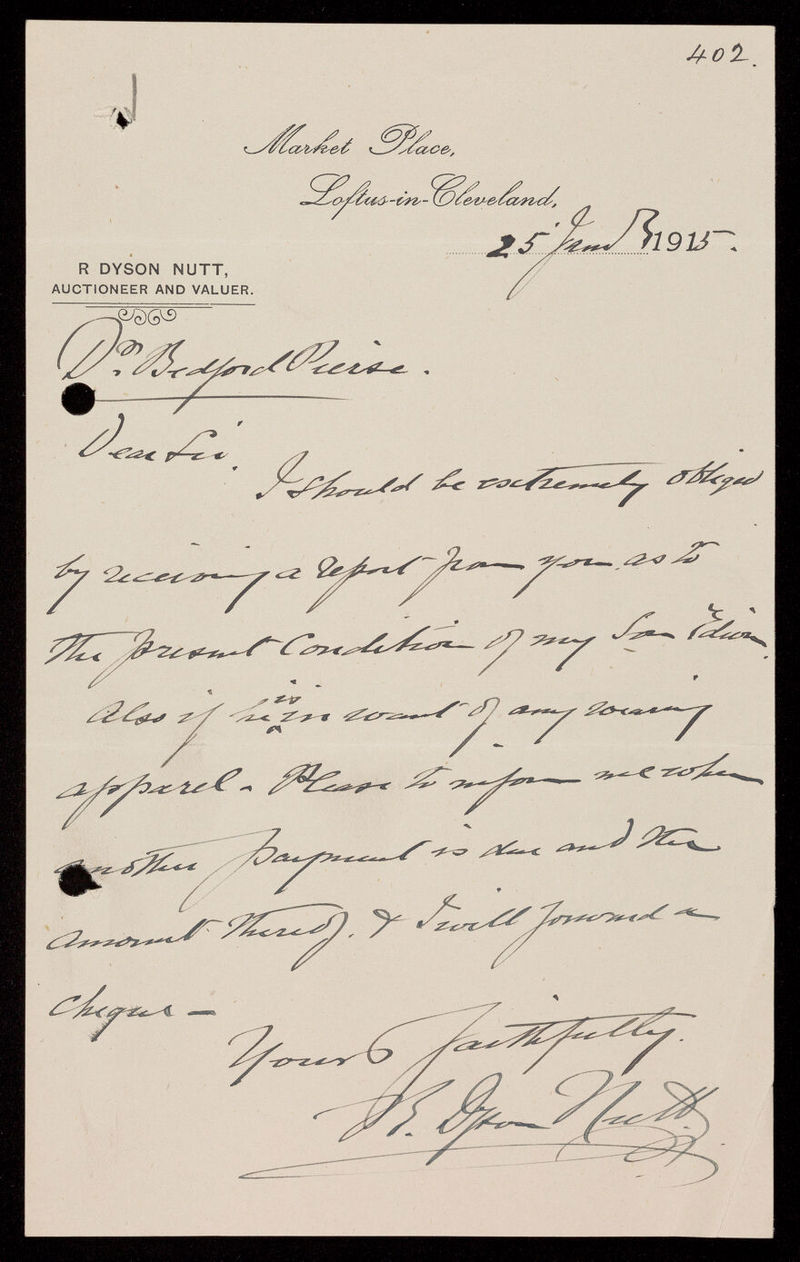 402.
Market Place,
Loftus-in-Cleveland,
25 Jany 1915.
R DYSON NUTT,
AUCTIONEER AND VALUER.
Dr. Bedford Pierse.
Dear Sir.
I should be extremely obliged
by receiving a report from you as to
the present Condition of my Son Edwin.
Also if he is in want of any wearing
apparel - Please to inform me when
another payment is due and the
amount thereof. & I will forward a
cheque -
Yours faithfully.
R. Dyson Nutt.